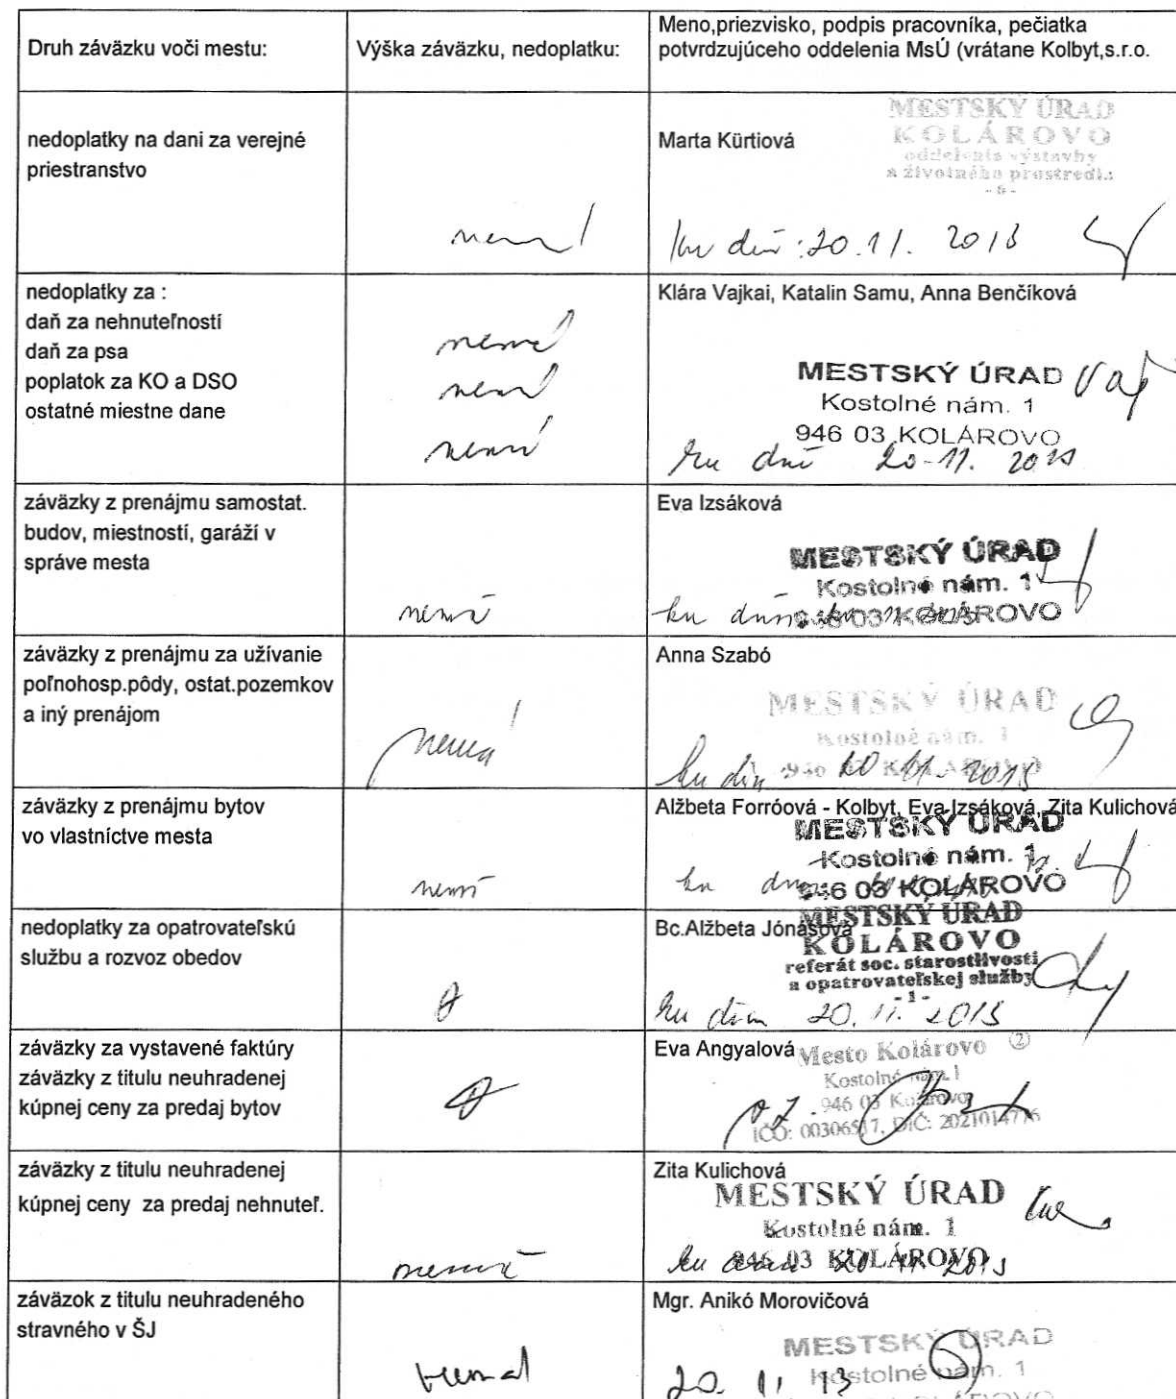 Druh záväzku voči mestu:
Výška záväzku, nedoplatku:
Meno,priezvisko, podpis pracovníka, pečiatka
potvrdzujúceho oddelenia MsÚ (vrátane Kolbyt,s.r.o.
nedoplatky na dani za verejné
priestranstvo
nemá
Marta Kürtiová
MESTSKÝ ÚRAD
KOLÁROVO
oddelenie výstavby
a životného prostredia
- 6 -
20.11. 2013
nedoplatky za :
daň za nehnuteľností
daň za psa
poplatok za KO a DSO
ostatné miestne dane
nemá
nemá
nemá
Klára Vajkai, Katalin Samu, Anna Benčíková
MESTSKÝ ÚRAD
Kostolné nám. 1
946 03 KOLÁROVO
ku dňu 20.11. 2013
záväzky z prenájmu samostat.
budov, miestností, garáží v
správe mesta
nemá
Eva Izsáková
MESTSKÝ ÚRAD
Kostolné nám. 1
946 03 KOLÁROVO
ku dňu
záväzky z prenájmu za užívanie
poľnohosp.pôdy, ostat.pozemkov
a iný prenájom
nemá
Anna Szabó
MESTSKÝ ÚRAD
Kostolné nám. 1
ku dňu 20.11.2013
záväzky z prenájmu bytov
vo vlastníctve mesta
nemá
Alžbeta Forróová - Kolbyt, Eva Izsáková, Zita Kulichová
MESTSKÝ ÚRAD
Kostolné nám. 1
946 03 KOLÁROVO
nedoplatky za opatrovateľskú
službu a rozvoz obedov
Bc.Alžbeta Jónásová
MESTSKÝ ÚRAD
KOLÁROVO
referát soc. starostlivosti
a opatrovateľskej služby
- 1 -
ku dňu 20. 11. 2013
záväzky za vystavené faktúry
záväzky z titulu neuhradenej
kúpnej ceny za predaj bytov
Eva Angyalová
Mesto Kolárovo 2
Kostolné nám. 1
946 03 Kolárovo
IČO: 00306517, DIČ: 2021014776
záväzky z titulu neuhradenej
kúpnej ceny za predaj nehnuteľ.
nemá
Zita Kulichová
MESTSKÝ ÚRAD
Kostolné nám. 1
946 03 KOLÁROVO
záväzok z titulu neuhradeného
stravného v ŠJ
nemá
Mgr. Anikó Morovičová
MESTSKÝ ÚRAD
Kostolné nám. 1
20. 11. 13